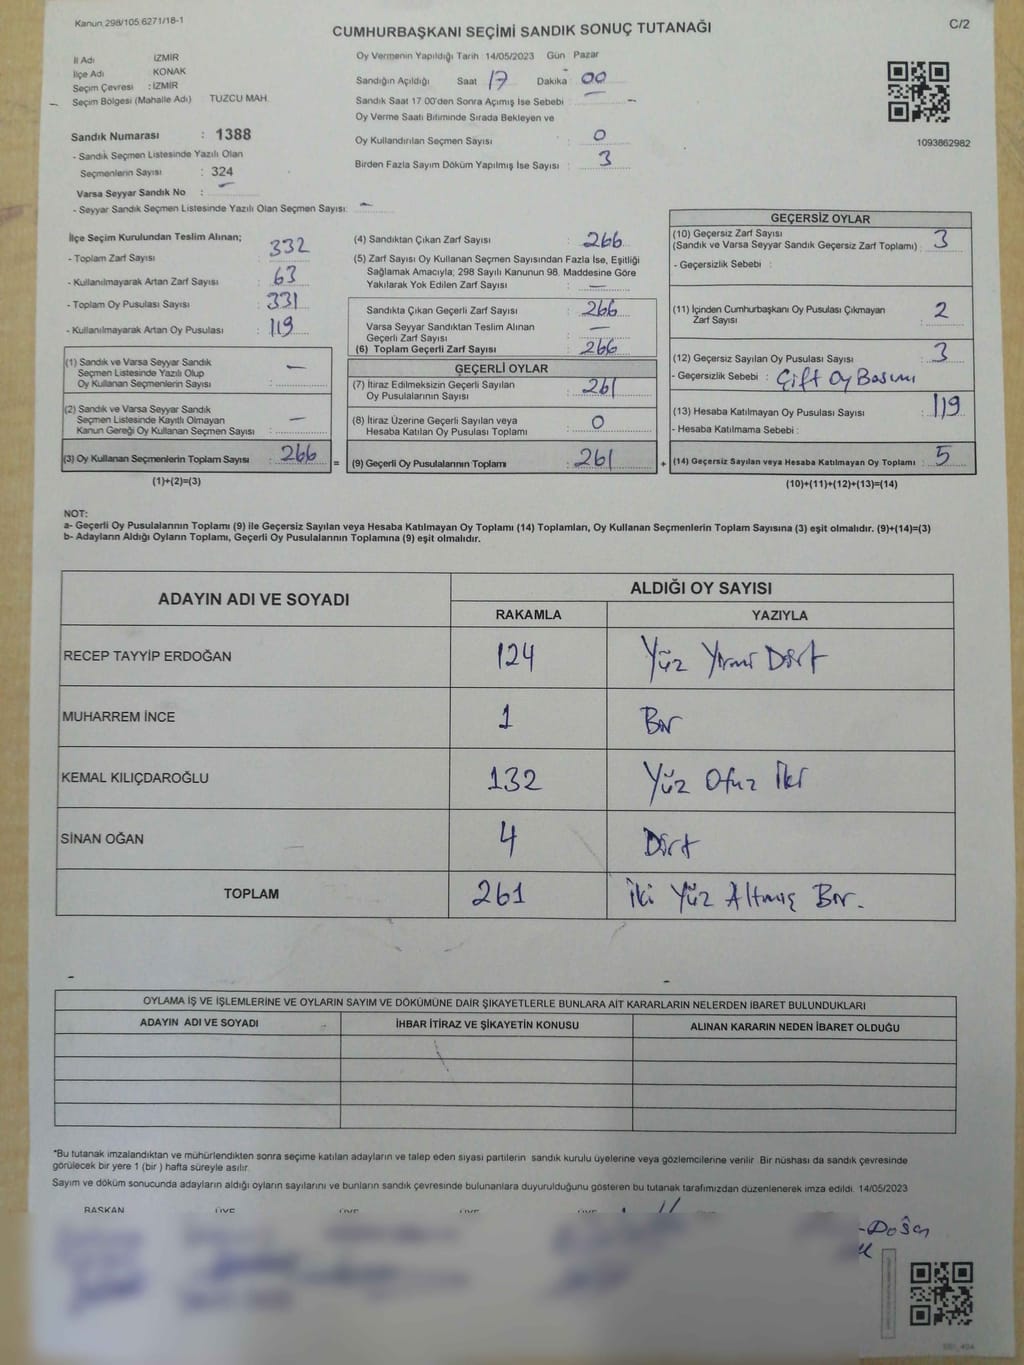 Kanun 298/105 6271/18-1
CUMHURBAŞKANI SEÇİMİ SANDIK SONUÇ TUTANAĞI
C/2
İl Adı İZMİR
İlçe Adı KONAK
Seçim Çevresi : İZMİR
Seçim Bölgesi (Mahalle Adı) TUZCU MAH.
Sandık Numarası : 1388
- Sandık Seçmen Listesinde Yazılı Olan
Seçmenlerin Sayısı : 324
Varsa Seyyar Sandık No : –
- Seyyar Sandık Seçmen Listesinde Yazılı Olan Seçmen Sayısı: –
Oy Vermenin Yapıldığı Tarih 14/05/2023 Gün Pazar
Sandığın Açıldığı Saat 17 Dakika 00
Sandık Saat 17 00'den Sonra Açımış İse Sebebi –
Oy Verme Saati Bitiminde Sırada Bekleyen ve
Oy Kullandırılan Seçmen Sayısı : 0
Birden Fazla Sayım Döküm Yapılmış İse Sayısı : 3
1093862982
İlçe Seçim Kurulundan Teslim Alınan;
- Toplam Zarf Sayısı : 332
- Kullanılmayarak Artan Zarf Sayısı : 63
- Toplam Oy Pusulası Sayısı : 331
- Kullanılmayarak Artan Oy Pusulası : 119
(1) Sandık ve Varsa Seyyar Sandık
Seçmen Listesinde Yazılı Olup
Oy Kullanan Seçmenlerin Sayısı : –
(2) Sandık ve Varsa Seyyar Sandık
Seçmen Listesinde Kayıtlı Olmayan
Kanun Gereği Oy Kullanan Seçmen Sayısı : –
(3) Oy Kullanan Seçmenlerin Toplam Sayısı : 266
(1)+(2)=(3)
(4) Sandıktan Çıkan Zarf Sayısı : 266
(5) Zarf Sayısı Oy Kullanan Seçmen Sayısından Fazla İse, Eşitliği
Sağlamak Amacıyla; 298 Sayılı Kanunun 98. Maddesine Göre
Yakılarak Yok Edilen Zarf Sayısı : –
Sandıkta Çıkan Geçerli Zarf Sayısı : 266
Varsa Seyyar Sandıktan Teslim Alınan
Geçerli Zarf Sayısı : –
(6) Toplam Geçerli Zarf Sayısı : 266
GEÇERLİ OYLAR
(7) İtiraz Edilmeksizin Geçerli Sayılan
Oy Pusulalarının Sayısı : 261
(8) İtiraz Üzerine Geçerli Sayılan veya
Hesaba Katılan Oy Pusulası Toplamı : 0
= (9) Geçerli Oy Pusulalarının Toplamı : 261
GEÇERSİZ OYLAR
(10) Geçersiz Zarf Sayısı
(Sandık ve Varsa Seyyar Sandık Geçersiz Zarf Toplamı) : 3
- Geçersizlik Sebebi :
(11) İçinden Cumhurbaşkanı Oy Pusulası Çıkmayan
Zarf Sayısı : 2
(12) Geçersiz Sayılan Oy Pusulası Sayısı : 3
- Geçersizlik Sebebi : Çift Oy Basımı
(13) Hesaba Katılmayan Oy Pusulası Sayısı : 119
- Hesaba Katılmama Sebebi :
+ (14) Geçersiz Sayılan veya Hesaba Katılmayan Oy Toplamı : 5
(10)+(11)+(12)+(13)=(14)
NOT:
a- Geçerli Oy Pusulalarının Toplamı (9) ile Geçersiz Sayılan veya Hesaba Katılmayan Oy Toplamı (14) Toplamları, Oy Kullanan Seçmenlerin Toplam Sayısına (3) eşit olmalıdır. (9)+(14)=(3)
b- Adayların Aldığı Oyların Toplamı, Geçerli Oy Pusulalarının Toplamına (9) eşit olmalıdır.
ADAYIN ADI VE SOYADI ALDIĞI OY SAYISI
RAKAMLA YAZIYLA
RECEP TAYYİP ERDOĞAN 124 Yüz Yirmi Dört
MUHARREM İNCE 1 Bir
KEMAL KILIÇDAROĞLU 132 Yüz Otuz İki
SİNAN OĞAN 4 Dört
TOPLAM 261 İki Yüz Altmış Bir.
OYLAMA İŞ VE İŞLEMLERİNE VE OYLARIN SAYIM VE DÖKÜMÜNE DAİR ŞİKAYETLERLE BUNLARA AİT KARARLARIN NELERDEN İBARET BULUNDUKLARI
ADAYIN ADI VE SOYADI İHBAR İTİRAZ VE ŞİKAYETİN KONUSU ALINAN KARARIN NEDEN İBARET OLDUĞU
*Bu tutanak imzalandıktan ve mühürlendikten sonra seçime katılan adayların ve talep eden siyasi partilerin sandık kurulu üyelerine veya gözlemcilerine verilir. Bir nüshası da sandık çevresinde
görülecek bir yere 1 (bir ) hafta süreyle asılır.
Sayım ve döküm sonucunda adayların aldığı oyların sayılarını ve bunların sandık çevresinde bulunanlara duyurulduğunu gösteren bu tutanak tarafımızdan düzenlenerek imza edildi. 14/05/2023
BAŞKAN ÜYE ÜYE ÜYE ÜYE